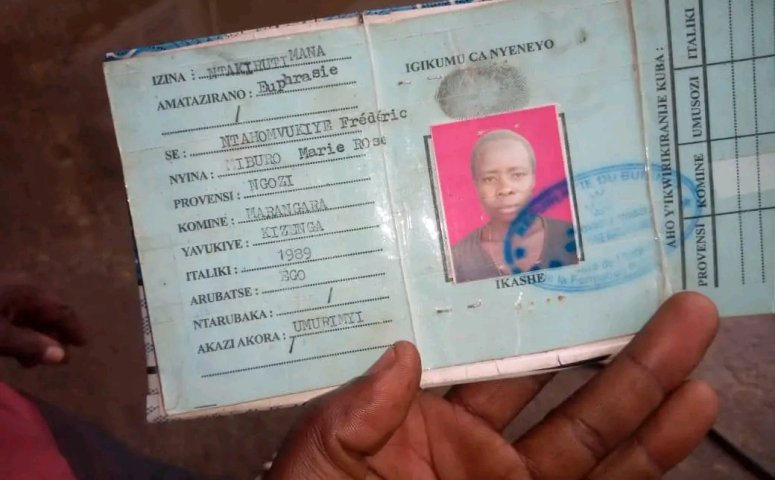 IZINA : NTAKIRUTIMANA
AMATAZIRANO : Euphrasie
/
SE : NTAHOMVUKIYE Frédéric
NYINA : NIBURO Marie Rose
PROVENSI : NGOZI
KOMINE : MARANGARA
YAVUKIYE : KIZENGA
ITALIKI : 1989
ARUBATSE : EGO
NTARUBAKA : /
AKAZI AKORA : UMURIMYI
/
IGIKUMU CA NYENEYO
IKASHE
AHO Y'IKWIRIKIRANIJE KUBA :
PROVENSI
KOMINE
UMUSOZI
ITALIKI